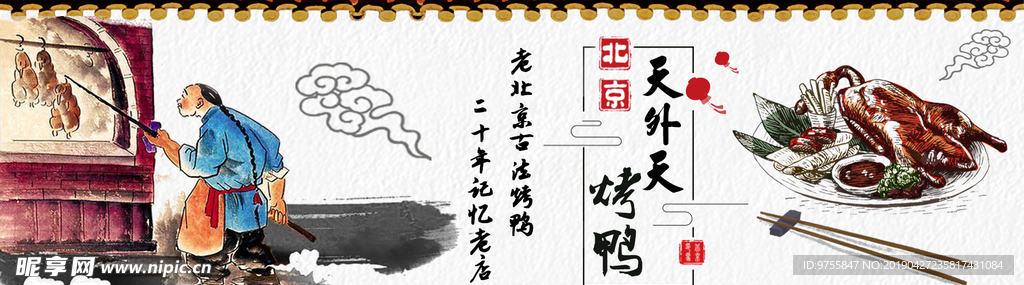 北京
天外天
烤鸭
老北京古法烤鸭
二十年记忆老店
昵享网 www.nipic.cn
ID:9755847 NO:20190427235817431084